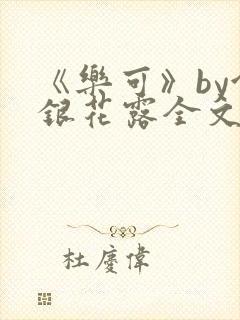 《樂可》by
銀花露全文
杜慶偉